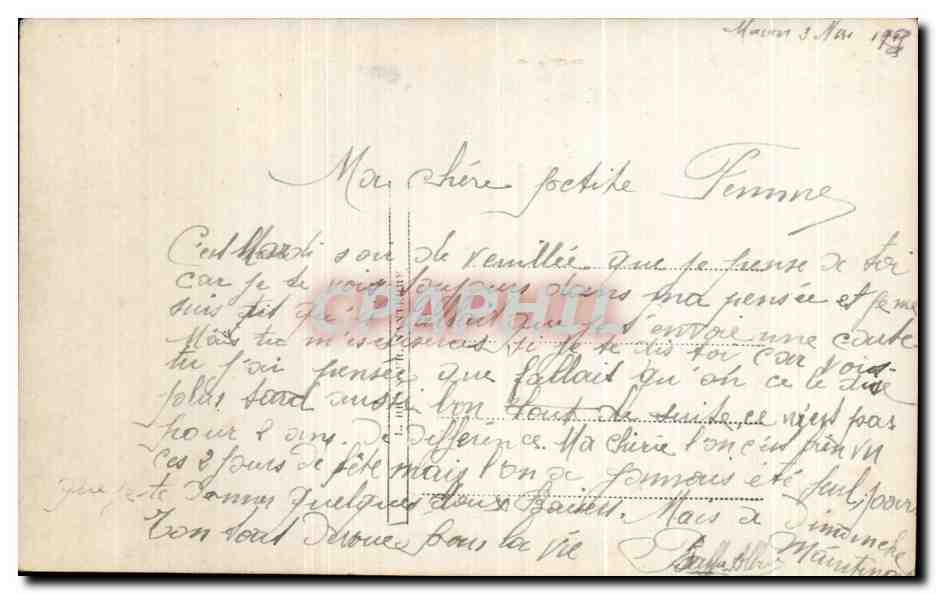 3 Mars
Ma chère petite Femme
C'est Mardi soir de veuillée que je pense a toi
car je te vois toujours dans ma pensée et je me
suis dit qu'il fallait que je t'envoie une carte
Mais tu m'excuseras si je te dis toi car vois
tu j'ai pensée que fallait qu'on ce le dise
plus tard aussi bon tout de suite ce n'est pas
pour 2 ans. De différence. Ma chérie l'on c'est bien vu
ces 2 jours de fête mais l'on a jamais été seul pour
que je te donner quelques doux Baisers. Mais a Dimanche
Ton tout dévoué pour la vie
CPARAMA